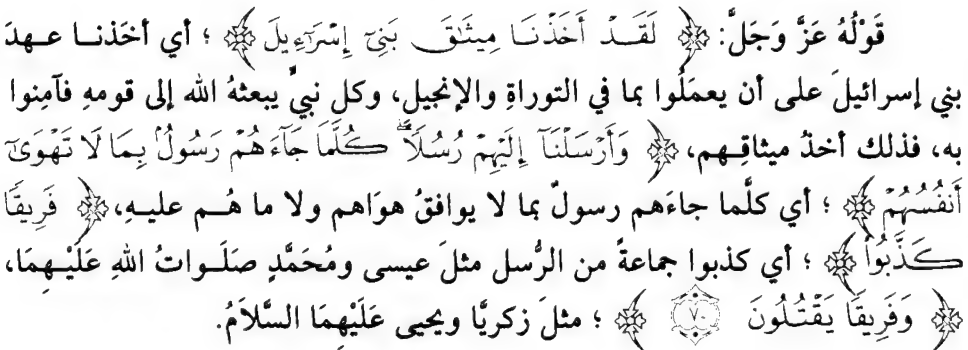 قَوْلُهُ عَزَّ وَجَلَّ: ﴿ لَقَدْ أَخَذْنَا مِيثَٰقَ بَنِيٓ إِسْرَٰٓءِيلَ ﴾ ؛ أي أخَذنا عـهدَ
بني إسرائيلَ على أن يعمَلُوا بما في التوراةِ والإنجيلِ، وكل نبيٍّ يبعثهُ الله إلى قومهِ فآمِنوا
به، فذلك أخذُ ميثاقِـهم، ﴿ وَأَرْسَلْنَآ إِلَيْهِمْ رُسُلًاۖ كُلَّمَا جَآءَهُمْ رَسُولٌۢ بِمَا لَا تَهْوَىٰٓ
أَنفُسُهُمْ ﴾ ؛ أي كلَّما جاءَهم رسولٌ بما لا يوافقُ هوَاهم ولا ما هُـم عليـهِ، ﴿ فَرِيقًا
كَذَّبُواْ ﴾ ؛ أي كذبوا جماعةً من الرُّسل مثلَ عيسى ومُحَمَّدٍ صلَـواتُ اللهِ عَلَيْـهِمَا،
﴿ وَفَرِيقًا يَقْتُلُونَ ٧٠ ﴾ ؛ مثلَ زكريَّا ويحيى عَلَيْهِمَا السَّلاَمُ.